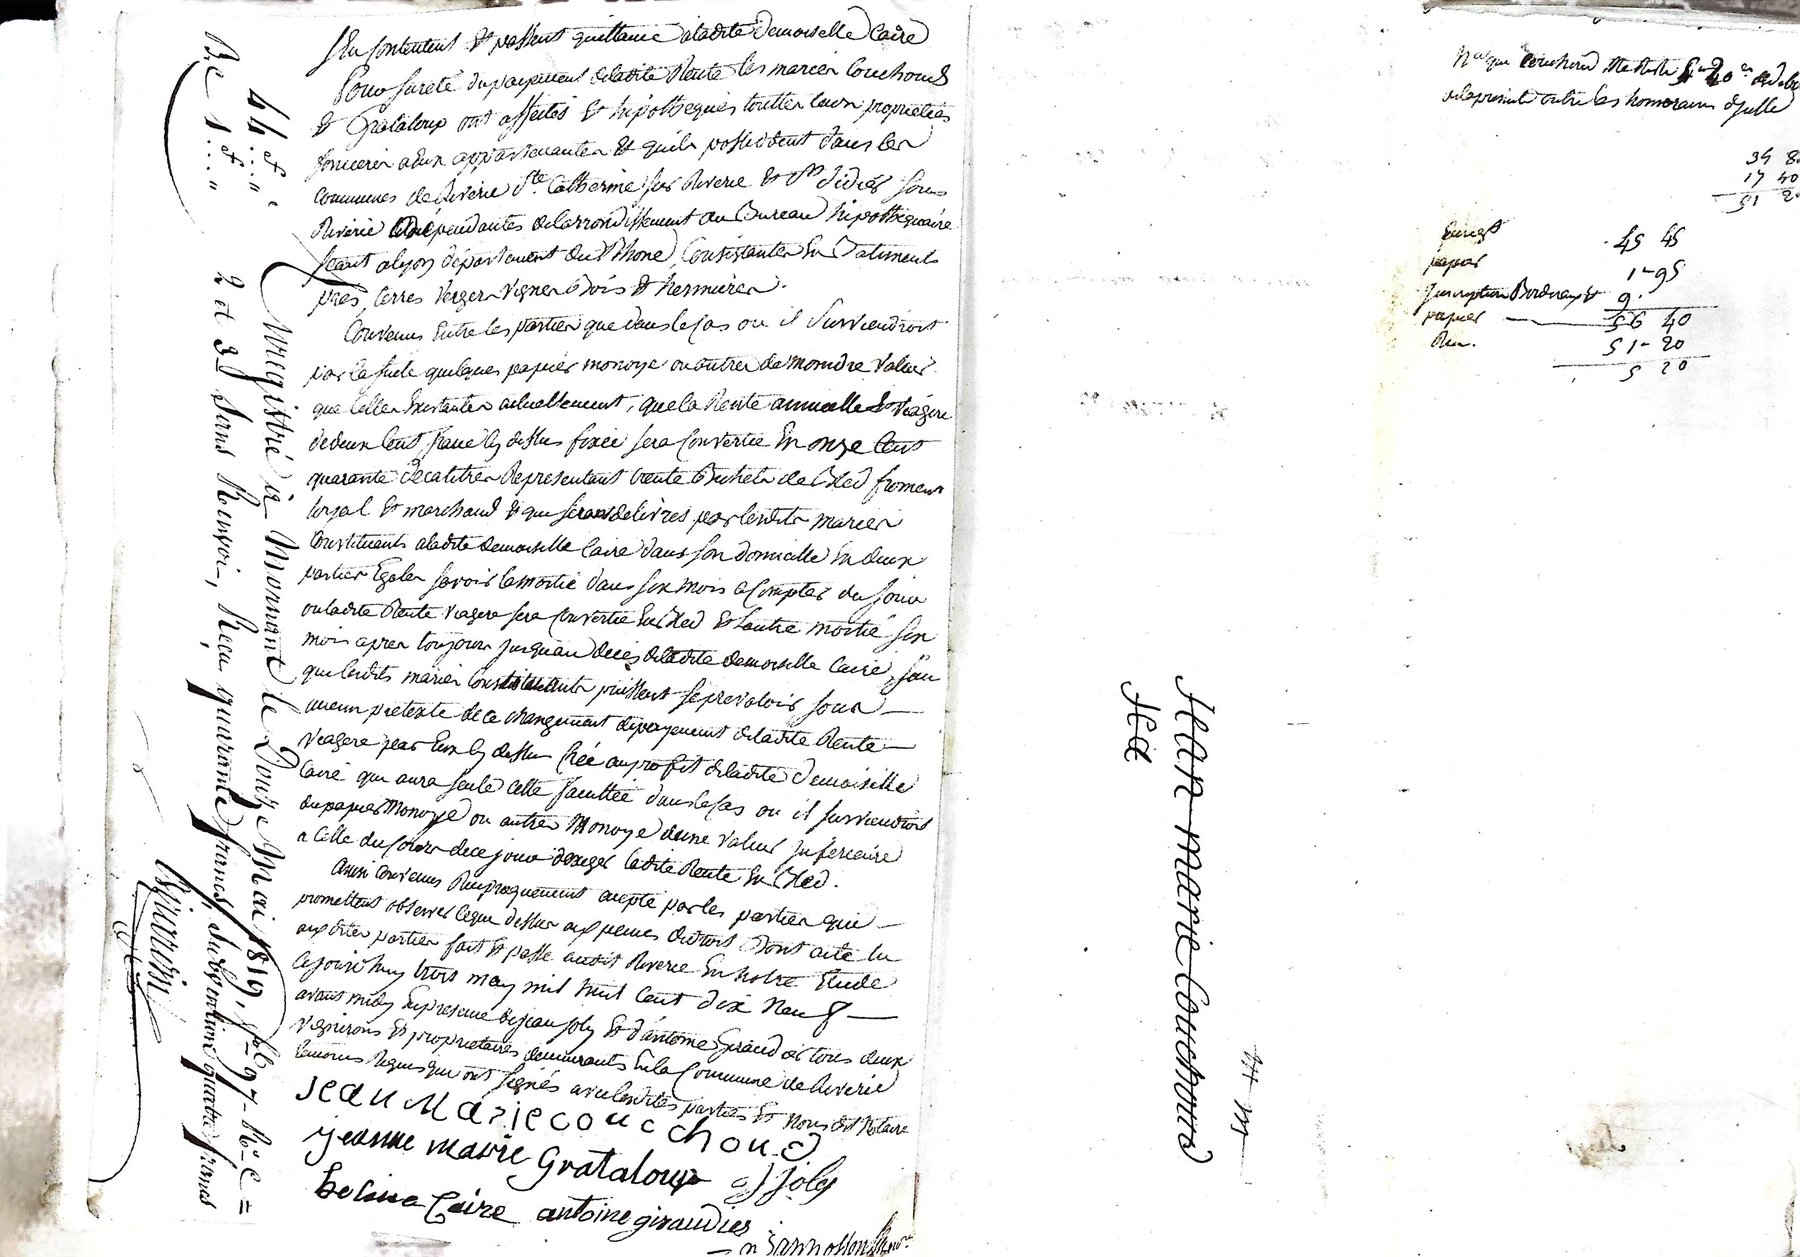 Sen Contentent et passent quittance aladite demoiselle Caire
Pour sureté du payement deladite Rente les mariés Couchoud
et Grataloup ont affectés et hipothequés touttes leurs proprietés
foncieres a Eux appartenantes et quils possedent dans les
communes de Riverie Ste Catherine sur Riverie et St didier sous
Riverie dépendantes delarrondissement du Bureau hipothequaire
seant alyon département du Rhone, Consistantes En Batiments
prés, terres Vergers Vignes Bois et hermières.
Convenus Entre les parties que dans le Cas ou il surviendroit
par la suite quelques papier monoye ou autres de moindre valeur
que celles Existantes actuellement, que la Rente annuelle et viagere
de deux Cent francs cy dessus fixée sera Convertie En onze Cent
quarante décalitres Representant trente Bichets de Bled froment
loyal et marchand et qui seront delivrés par lesdits mariés
Constituants aladite demoiselle Caire dans son domicille En deux
parties Egales savoir la moitié dans six mois a Compter du jour
ou ladite Rente viagere sera Convertie En Bled et l'autre moitié six
mois apres toujours jusqu'au deces deladite demoiselle Caire, san
que lesdits mariés Constituants puissent se prevaloir sous
aucun pretexte de ce changement de payement deladite Rente
viagere par Eux cy dessus Créé au profit deladite demoiselle
Caire qui aura seule cette facultée dans le Cas ou il surviendroit
du papier Monoye ou autres Monoye d'une valeur inferieure
a Celle du Cours de ce jour d'exiger ladite Rente En Bled.
Ainsi Convenus Reciproquement accepté par les parties qui
promettent observer ceque dessus aux peines de droit Dont acte lu
auxdites parties fait et passé audit Riverie En notre Etude
Cejourd'huy trois may mil huit Cent dix Neuf
avant midy En presence de jean joly et d'antoine Giraudier tous deux
vignerons et proprietaires demeurants En la Commune de Riverie
temoins Requis qui ont signés avec lesdites parties et Nous dit Notaire
jean Marie couchoud
jeanne marie Grataloup J Joly
Caire antoine giraudier
44 f. "
Re 4 f. "
Enregistré à Mornant le Douze Mai 1819, fol. 97 Ro C =
2 et 3 Sans Renvoi, Reçu quarante francs, Subvention quatre francs
Jean marie Couchoud
Jea
que Couchoud
delapresente outre les honoraires d'ycelle
34 8
17 40
51 2
Enregt 45 45
papier 1-95
Inscription Bordereaux et 9.
papier 56 40
Reçu. 51-20
5 20